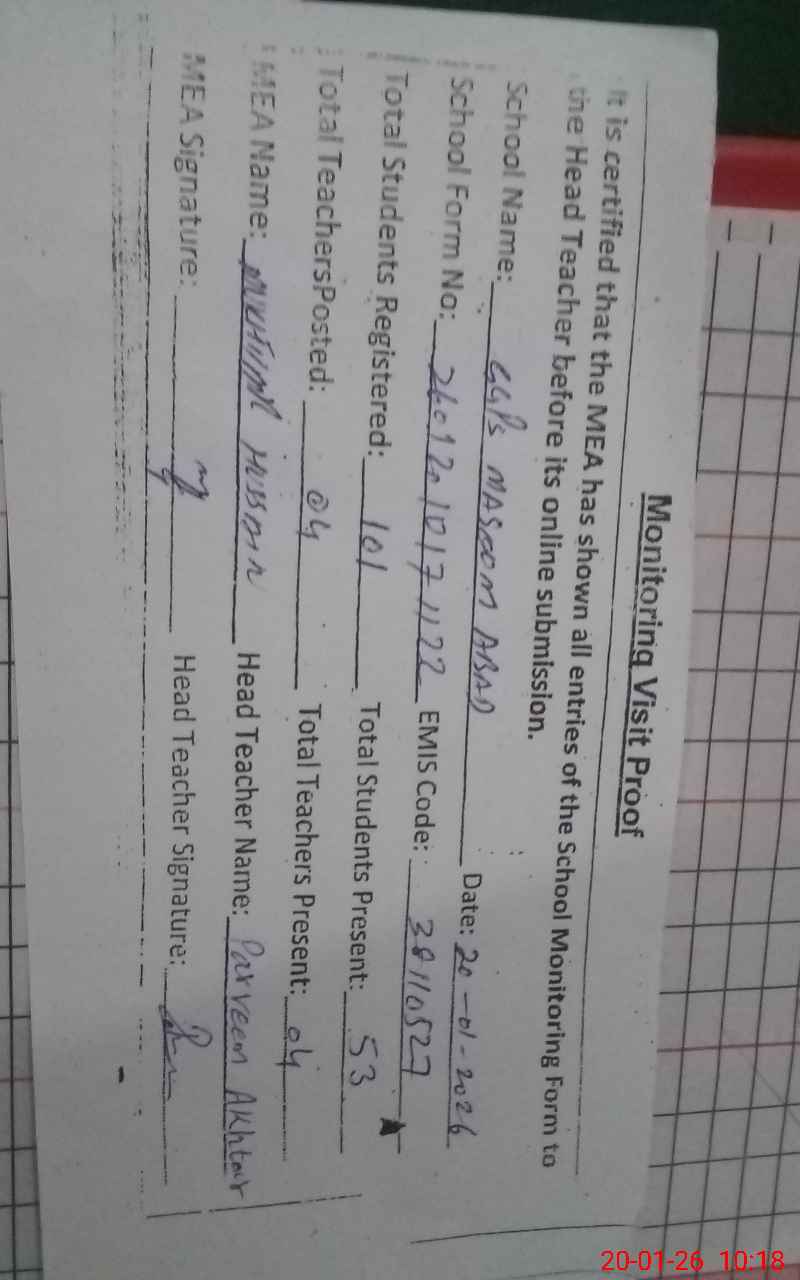 Monitoring Visit Proof
It is certified that the MEA has shown all entries of the School Monitoring Form to
the Head Teacher before its online submission.
School Name: GGPS MASOOM ABAD Date: 20-01-2026
School Form No: EMIS Code: 38110527
Total Students Registered: 101 Total Students Present: 53
Total TeachersPosted: 04 Total Teachers Present: 04
MEA Name: HUSSAIN Head Teacher Name: Parveen Akhtar
MEA Signature: Head Teacher Signature:
20-01-26 10:18